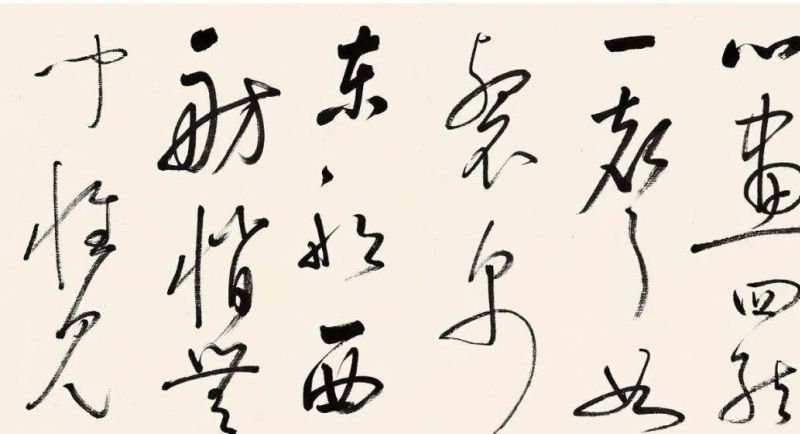 心画四弦
一声如
裂帛
东船西
舫悄无
中惟见